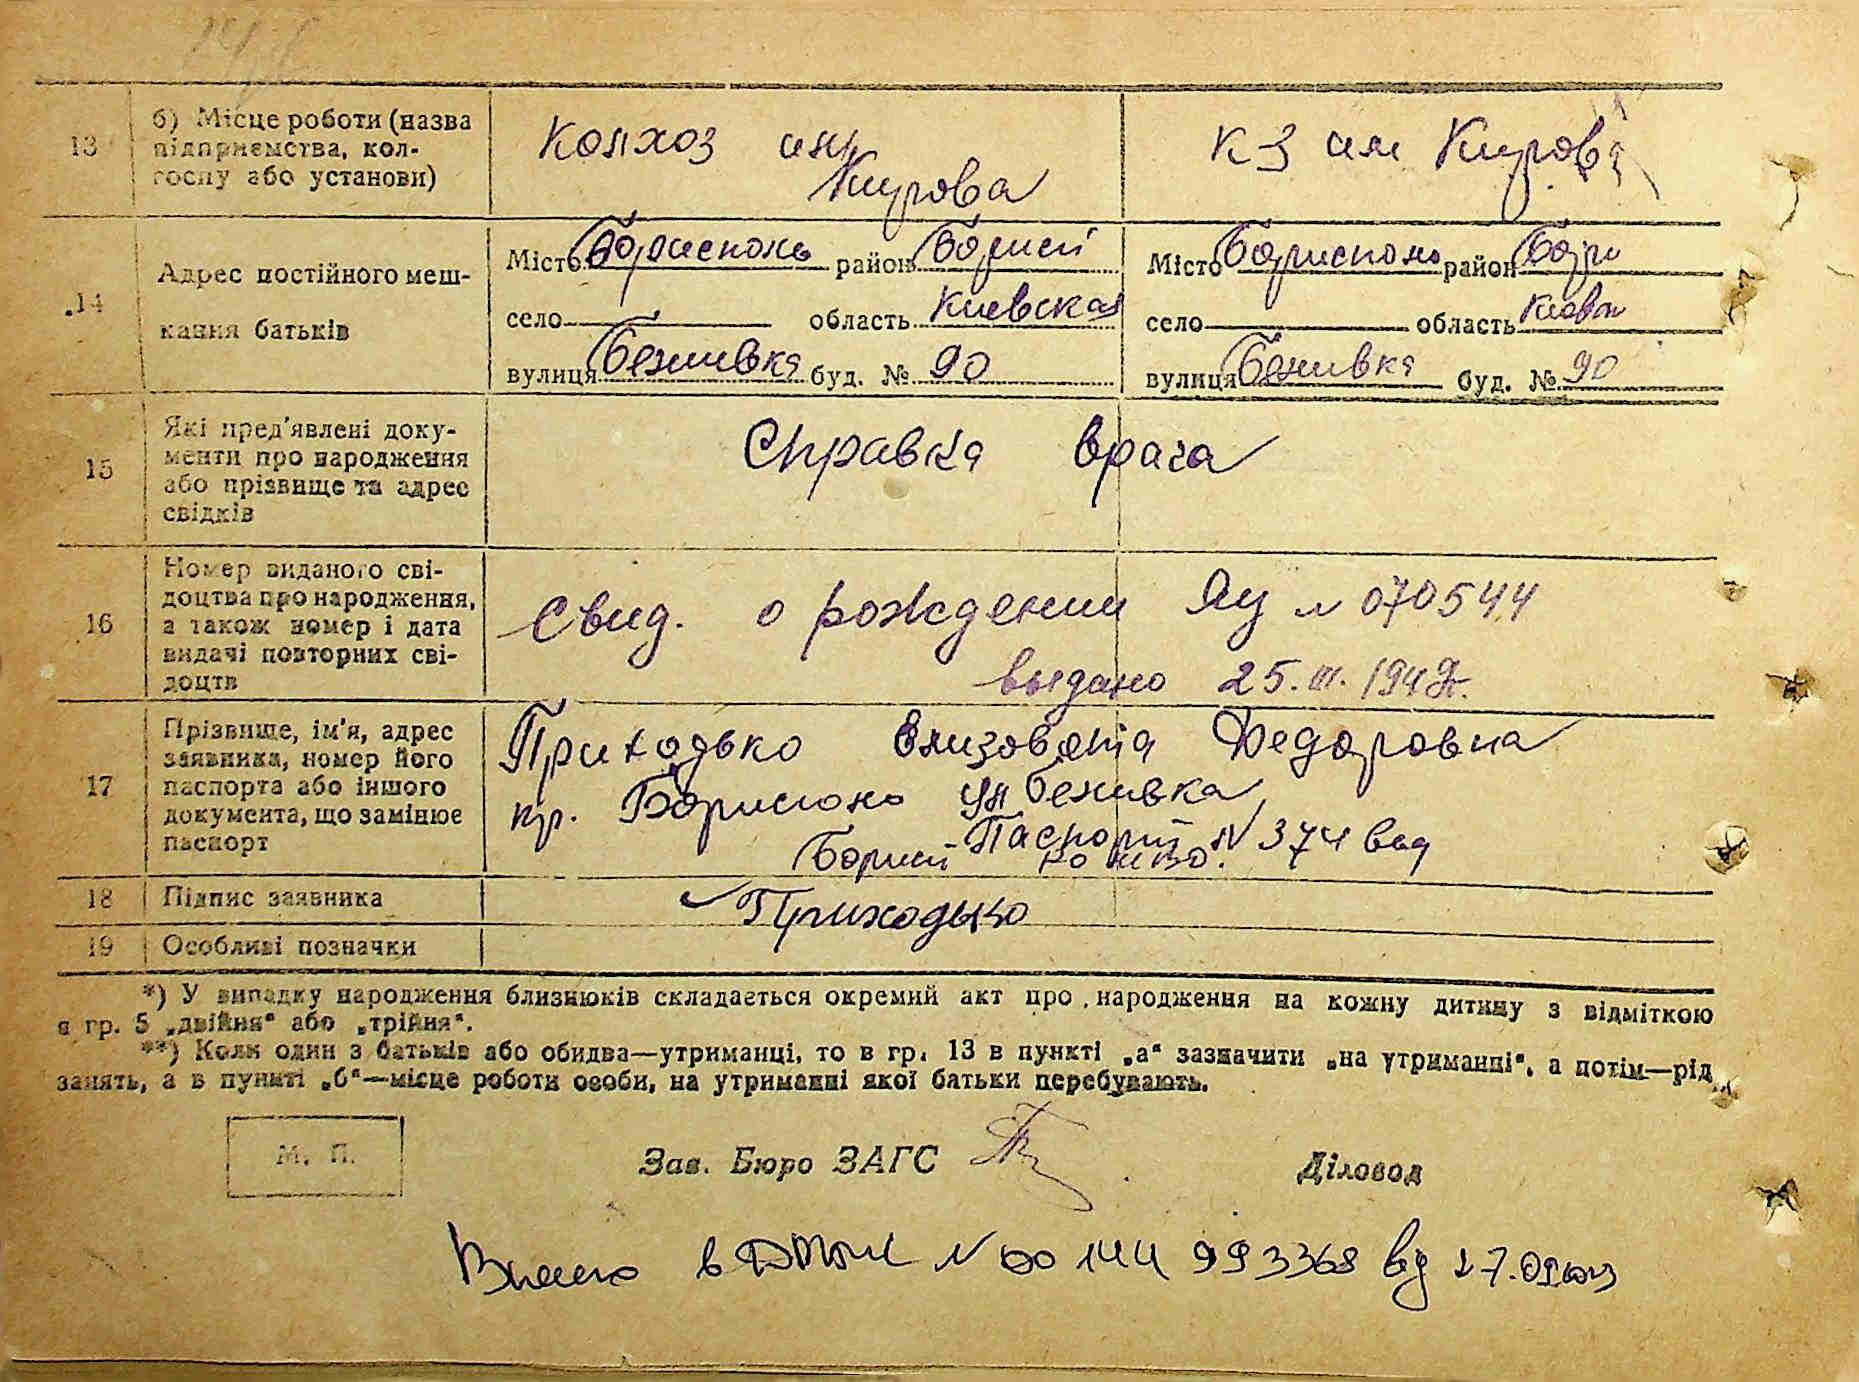 13
б) Місце роботи (назва
підприємства, кол-
госпу або установи)
Колхоз им
Кирова
К З им Кирова
14
Адрес постійного меш-
кання батьків
Місто Бориспон район Борисп
село — область Киевская
вулиця Безнивка буд. № 90
Місто район Бори
село — область
вулиця буд. № 90
15
Які пред'явлені доку-
менти про народження
або прізвище та адрес
свідків
Справка врача
16
Номер виданого сві-
доцтва про народження,
а також номер і дата
видачі повторних сві-
доцтв
Свид. о рождении № 070544
выдано 25. III. 194
17
Прізвище, ім'я, адрес
заявника, номер його
паспорта або іншого
документа, що замінює
паспорт
Приходько Елизовета Федоровна
ул
Паспорт № 374 выд
18
Підпис заявника
Приходько
19
Особливі позначки
*) У випадку народження близнюків складається окремий акт про народження на кожну дитину з відміткою
в гр. 5 „двійня“ або „трійня“.
**) Коли один з батьків або обидва—утриманці, то в гр. 13 в пункті „а“ зазначити „на утриманні“, а потім—рід
занять, а в пункті „б“—місце роботи особи, на утриманні якої батьки перебувають.
М. П.
Зав. Бюро ЗАГС
Діловод
Внесено в № 00 144 993368 від